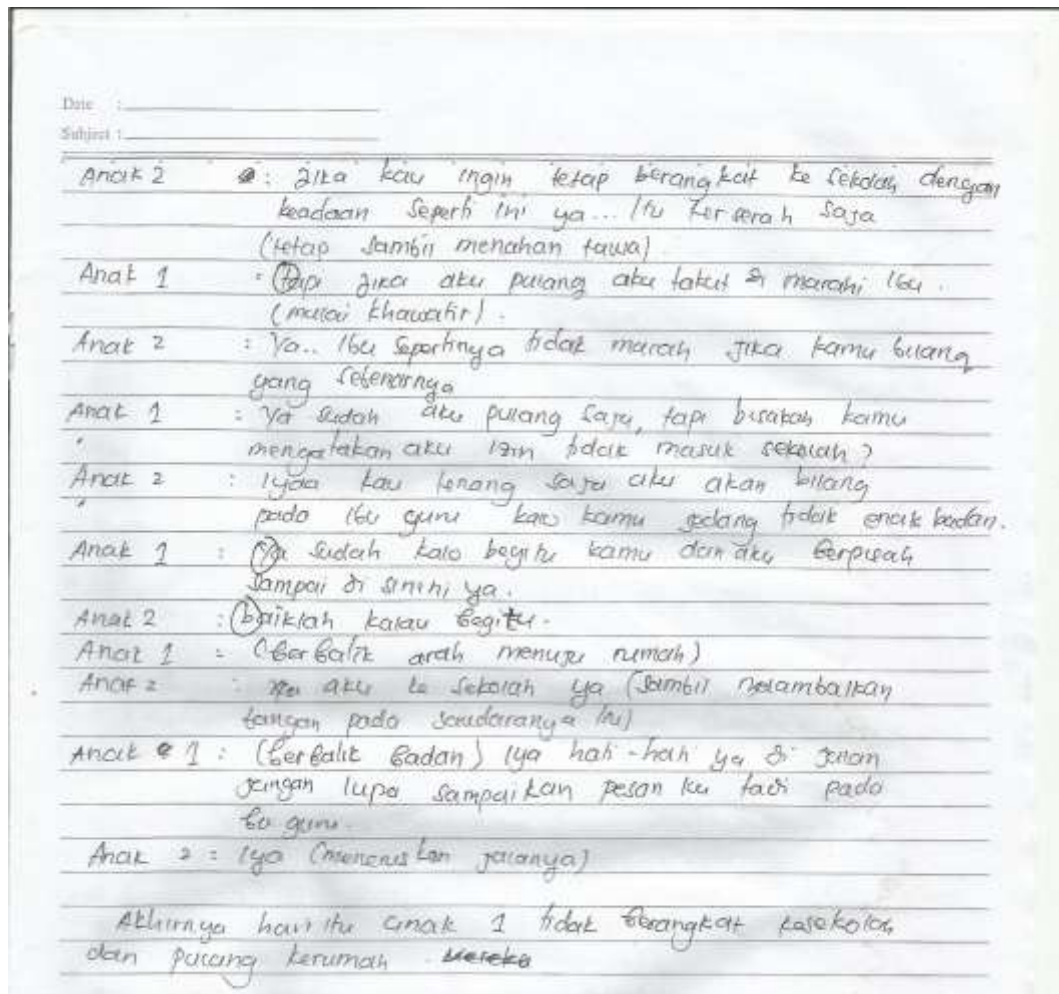 Date :
Subject :
Anak 2 : Jika kau ingin tetap berangkat ke sekolah dengan
keadaan seperti ini ya... itu terserah saja
(tetap sambil menahan tawa).
Anak 1 : Tapi jika aku pulang aku takut di marahi Ibu.
(mulai khawatir).
Anak 2 : Ya.. Ibu sepertinya tidak marah jika kamu bilang
yang sebenarnya
Anak 1 : Ya sudah aku pulang saja, tapi bisakah kamu
mengatakan aku izin tidak masuk sekolah?
Anak 2 : Iyaa kau tenang saja aku akan bilang
pada ibu guru kamu sedang tidak enak badan.
Anak 1 : Ya sudah kalo begitu kamu dan aku berpisah
sampai di sinini ya.
Anak 2 : baiklah kalau begitu.
Anak 1 : (berbalik arah menuju rumah)
Anak 2 : aku ke sekolah ya (sambil melambaikan
tangan pada saudaranya itu)
Anak 1 : (berbalik badan) iya hati-hati ya di jalan
jangan lupa sampaikan pesan ku tadi pada
bu guru.
Anak 2 : iya (meneruskan jalanya)
Akhirnya hari itu anak 1 tidak berangkat kesekolah
dan pulang kerumah. Mereka